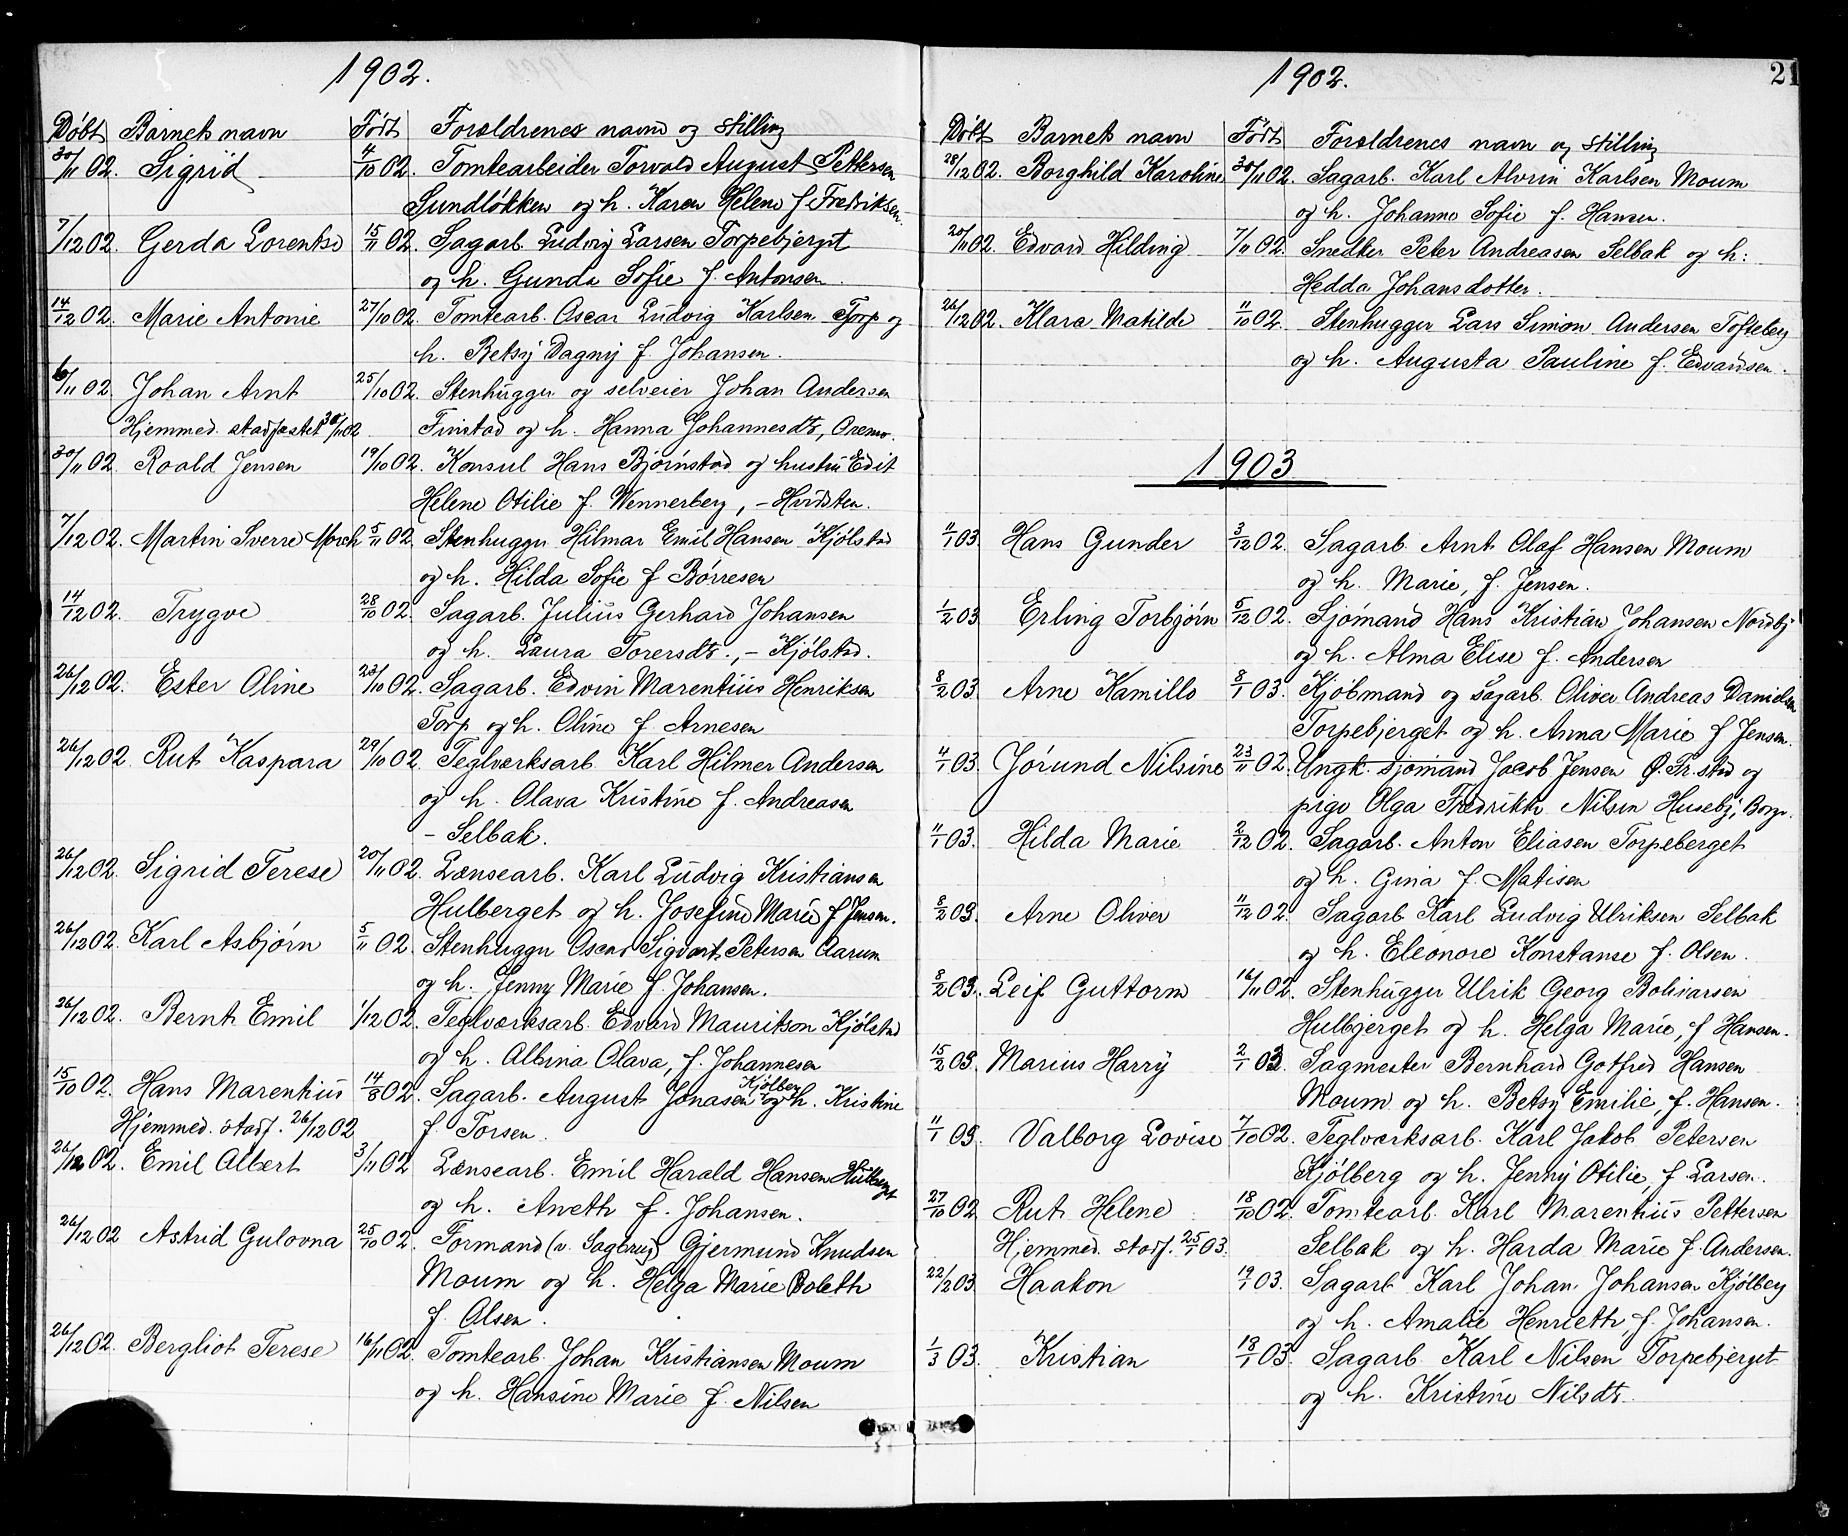 1902.
Döbt Barnets navn Födt Forældrenes navn og stilling
30/11 02. Sigrid 4/10 02. Tomtearbeider Torvald August Pettersen
Sundlökken og h. Karen Helene f. Fredriksen.
7/12 02. Gerda Lorentse 15/11 02. Sagarb. Ludvig Larsen Torpebjerget
og h. Gunda Sofie f. Antonsen.
14/12 02. Marie Antonie 27/10 02. Tomtearb. Oscar Ludvig Karlsen Torp og
h. Betsy Dagny f. Johansen.
6/11 02. Johan Arnt 25/10 02. Stenhugger og selveier Johan Andersen
Hjemmed. stadfæstet 30/11 02 Finstad og h. Hanna Johannesdtr, Oremo.
30/11 02. Roald Jensen 19/10 02. Konsul Hans Björnstad og hustru Edit
Helene Otilie f. Wennerberg, – Hvidsten.
7/12 02. Martin Sverre Mork 5/11 02. Stenhugger Hilmar Emil Hansen Kjölstad
og h. Hilda Sofie f. Börresen
14/12 02. Trygve 28/10 02. Sagarb. Julius Gerhard Johansen
og h. Laura Torersdtr., – Kjölstad.
26/12 02. Ester Oline 23/10 02. Sagarb. Edvin Marentius Henriksen
Torp og h. Oline f. Arnesen
26/12 02 Rut Kaspara 29/10 02. Teglværksarb. Karl Hilmer Andersen
og h. Olava Kristine f. Andreasen
– Selbak.
26/12 02. Sigrid Terese 20/11 02. Lænsearb. Karl Ludvig Kristiansen
Hulberget og h. Josefine Marie f. Jensen.
26/12 02. Karl Asbjörn 5/11 02. Stenhugger Oscar Sigvart Petersen Aarum
og h. Jenny Marie f. Johansen.
26/12 02. Bernt Emil 1/12 02. Teglværksarb. Edvard Mauritson Kjölstad
og h. Albina Olava, f. Johannesen
15/10 02. Hans Marentius 14/8 02. Sagarb. August Jonasen Kjölberg og h. Kristine
Hjemmed. stadf. 26/12 02 f. Torsen.
26/12 02. Emil Albert 3/11 02 Lænsearb. Emil Harald Hansen Hulberget
og h. Aneth f. Johansen.
26/12 02 Astrid Gulovna 25/10 02. Formand (v. Sagbrug) Gjermund Knudsen
Moum og h. Helga Marie Boleth
f. Olsen.
26/12 02. Bergliot Terese 16/11 02. Tomtearb. Johan Kristiansen Moum
og h. Hansine Marie f. Nilsen
1902.
21
Döbt Barnets navn Födt Forældrenes navn og stilling
28/12 02. Borghild Karoline 30/11 02. Sagarb. Karl Alvrin Karlsen Moum
og h. Johanne Sofie f. Hansen.
20/11 02. Edvard Hilding 7/11 02. Snedker Peter Andreasen Selbak og h:
Hedda Johansdotter.
26/12 02. Klara Matilde 11/10 02. Stenhugger Lars Simon Andersen Tofteberg
og h. Augusta Pauline f. Edvardsen.
1903
11/1 03. Hans Gunder 3/12 02. Sagarb. Arnt Olaf Hansen Moum
og h. Marie, f. Jensen.
1/2 03 Erling Torbjörn 5/12 02. Sjömand Hans Kristian Johansen Nordby
og h. Alma Elise f. Andersen
8/2 03. Arne Kamillo 8/1 03. Kjöbmand og sagarb. Oliver Andreas Danielsen
Torpebjerget og h. Anna Marie f Jensen.
4/1 03. Jörund Nilsine 23/11 02. Ungk. sjömand Jacob Jensen Ö. Fr.stad og
pige Olga Fredrikke Nilsen Huseby, Borge.
11/1 03. Hilda Marie 2/12 02. Sagarb. Anton Eliasen Torpeberget
og h. Gina f. Matisen
8/2 03. Arne Oliver 11/12 02. Sagarb Karl Ludvig Ulriksen Selbak
og h. Eleonore Konstanse f. Olsen.
8/2 03. Leif Guttorm 16/11 02. Stenhugger Ulrik Georg Bolivarsen
Hulbjerget og h. Helga Marie, f Hansen.
15/2 03. Marius Harry 2/1 03. Sagmester Bernhard Gotfred Hansen
Moum og h. Betsy Emilie, f. Hansen.
11/1 03. Valborg Lovise 7/10 02. Teglværksarb. Karl Jakob Petersen
Kjölberg og h. Jenny Otilie, f Larsen.
27/10 02 Rut Helene 18/10 02. Tomtearb. Karl Marentius Pettersen
Hjemmed. stadf. 25/1 03. Selbak og h. Harda Marie f. Andersen.
22/2 03. Haakon 19/1 03. Sagarb Karl Johan Johansen Kjölberg
og h. Amalie Henrieth, f. Johansen.
1/3 03. Kristian 18/1 03. Sagarb Karl Nilsen Torpebjerget
og h. Kristine Nilsdtr.